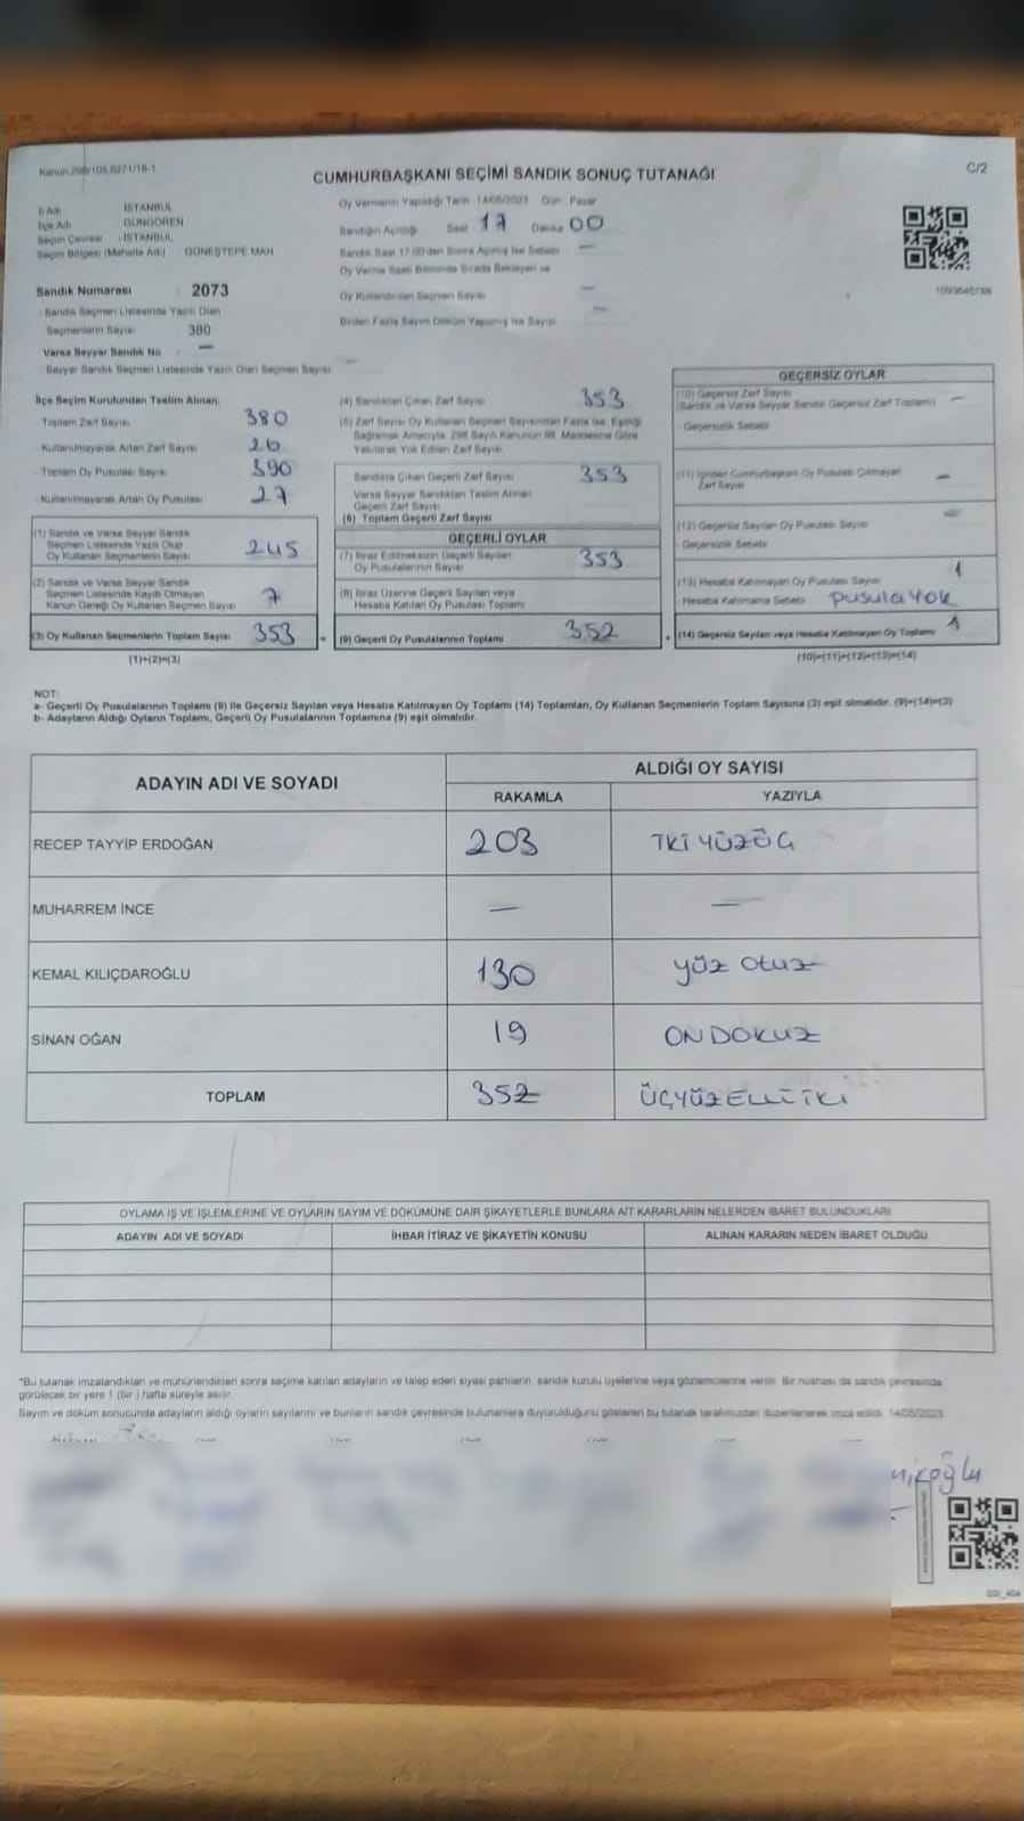 CUMHURBAŞKANI SEÇİMİ SANDIK SONUÇ TUTANAĞI
C/2
Oy Vermenin Yapıldığı Tarih 14/05/2023 Gün Pazar
İl Adı İSTANBUL
İlçe Adı GÜNGÖREN
Seçim Çevresi İSTANBUL
Seçim Bölgesi (Mahalle Adı) GÜNEŞTEPE MAH
Sandığın Açıldığı Saat 17 Dakika 00
Sandık Saat 17.00'den Sonra Açılmış İse Sebebi —
Oy Verme Saati Bitiminde Sırada Bekleyen ve
Oy Kullandırılan Seçmen Sayısı —
Birden Fazla Sayım Döküm Yapılmış İse Sayısı —
Sandık Numarası : 2073
Sandık Seçmen Listesinde Yazılı Olan
Seçmenlerin Sayısı : 380
Varsa Seyyar Sandık No : —
Seyyar Sandık Seçmen Listesinde Yazılı Olan Seçmen Sayısı —
İlçe Seçim Kurulundan Teslim Alınan;
Toplam Zarf Sayısı 380
Kullanılmayarak Artan Zarf Sayısı 26
Toplam Oy Pusulası Sayısı 390
Kullanılmayarak Artan Oy Pusulası 27
(1) Sandık ve Varsa Seyyar Sandık
Seçmen Listesinde Yazılı Olup
Oy Kullanan Seçmenlerin Sayısı 245
(2) Sandık ve Varsa Seyyar Sandık
Seçmen Listesinde Kaydı Olmayan
Kanun Gereği Oy Kullanan Seçmen Sayısı 7
(3) Oy Kullanan Seçmenlerin Toplam Sayısı 353
(1)+(2)=(3)
(4) Sandıktan Çıkan Zarf Sayısı 353
(5) Zarf Sayısı Oy Kullanan Seçmen Sayısından Fazla İse, Eşitliği
Sağlamak Amacıyla, 298 Sayılı Kanunun 98. Maddesine Göre
Yakılarak Yok Edilen Zarf Sayısı
Sandıkta Çıkan Geçerli Zarf Sayısı 353
Varsa Seyyar Sandıktan Teslim Alınan
Geçerli Zarf Sayısı
(6) Toplam Geçerli Zarf Sayısı
GEÇERLİ OYLAR
(7) İtiraz Edilmeksizin Geçerli Sayılan
Oy Pusulalarının Sayısı 353
(8) İtiraz Üzerine Geçerli Sayılan veya
Hesaba Katılan Oy Pusulası Toplamı
(9) Geçerli Oy Pusulalarının Toplamı 352
GEÇERSİZ OYLAR
(10) Geçersiz Zarf Sayısı
(Sandık ve Varsa Seyyar Sandık Geçersiz Zarf Toplamı) —
Geçersizlik Sebebi
(11) İçinden Cumhurbaşkanı Oy Pusulası Çıkmayan
Zarf Sayısı —
(12) Geçersiz Sayılan Oy Pusulası Sayısı —
Geçersizlik Sebebi
(13) Hesaba Katılmayan Oy Pusulası Sayısı 1
Hesaba Katılmama Sebebi pusula yok
(14) Geçersiz Sayılan veya Hesaba Katılmayan Oy Toplamı 1
(10)+(11)+(12)+(13)=(14)
NOT:
a- Geçerli Oy Pusulalarının Toplamı (9) ile Geçersiz Sayılan veya Hesaba Katılmayan Oy Toplamı (14) Toplamları, Oy Kullanan Seçmenlerin Toplam Sayısına (3) eşit olmalıdır. (9)+(14)=(3)
b- Adayların Aldığı Oyların Toplamı, Geçerli Oy Pusulalarının Toplamına (9) eşit olmalıdır.
ADAYIN ADI VE SOYADI
ALDIĞI OY SAYISI
RAKAMLA YAZIYLA
RECEP TAYYİP ERDOĞAN 203 İKİ YÜZÜÇ
MUHARREM İNCE — —
KEMAL KILIÇDAROĞLU 130 yüz otuz
SİNAN OĞAN 19 ONDOKUZ
TOPLAM 352 ÜÇYÜZELLİİKİ
OYLAMA İŞ VE İŞLEMLERİNE VE OYLARIN SAYIM VE DÖKÜMÜNE DAİR ŞİKAYETLERLE BUNLARA AİT KARARLARIN NELERDEN İBARET BULUNDUKLARI
ADAYIN ADI VE SOYADI İHBAR İTİRAZ VE ŞİKAYETİN KONUSU ALINAN KARARIN NEDEN İBARET OLDUĞU
*Bu tutanak imzalandıktan ve mühürlendikten sonra seçime katılan adayların ve talep eden siyasi partilerin, sandık kurulu üyelerine veya gözlemcilerine verilir. Bir nüshası da sandık çevresinde
görülecek bir yere 1 (bir) hafta süreyle asılır.
Sayım ve döküm sonucunda adayların aldığı oyların sayılarını ve bunların sandık çevresinde bulunanlara duyurulduğunu gösteren bu tutanak tarafımızdan düzenlenerek imza edildi. 14/05/2023